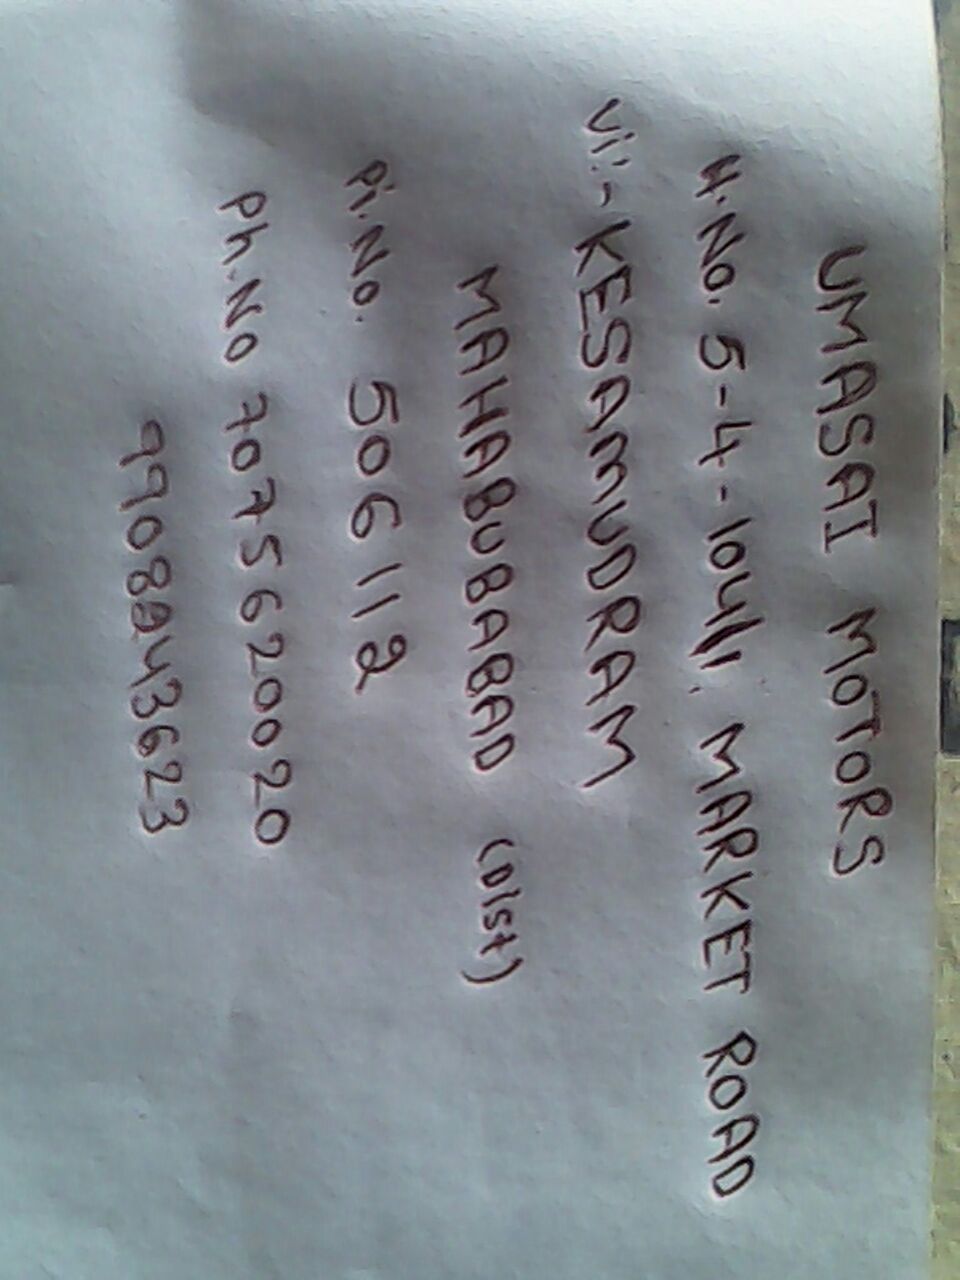 UMASAI MOTORS
H.No. 5-4-104/1, MARKET ROAD
Vi:- KESAMUDRAM
MAHABUBABAD (Dist)
Pi.No. 506112
Ph.No 7075620020
9908243623